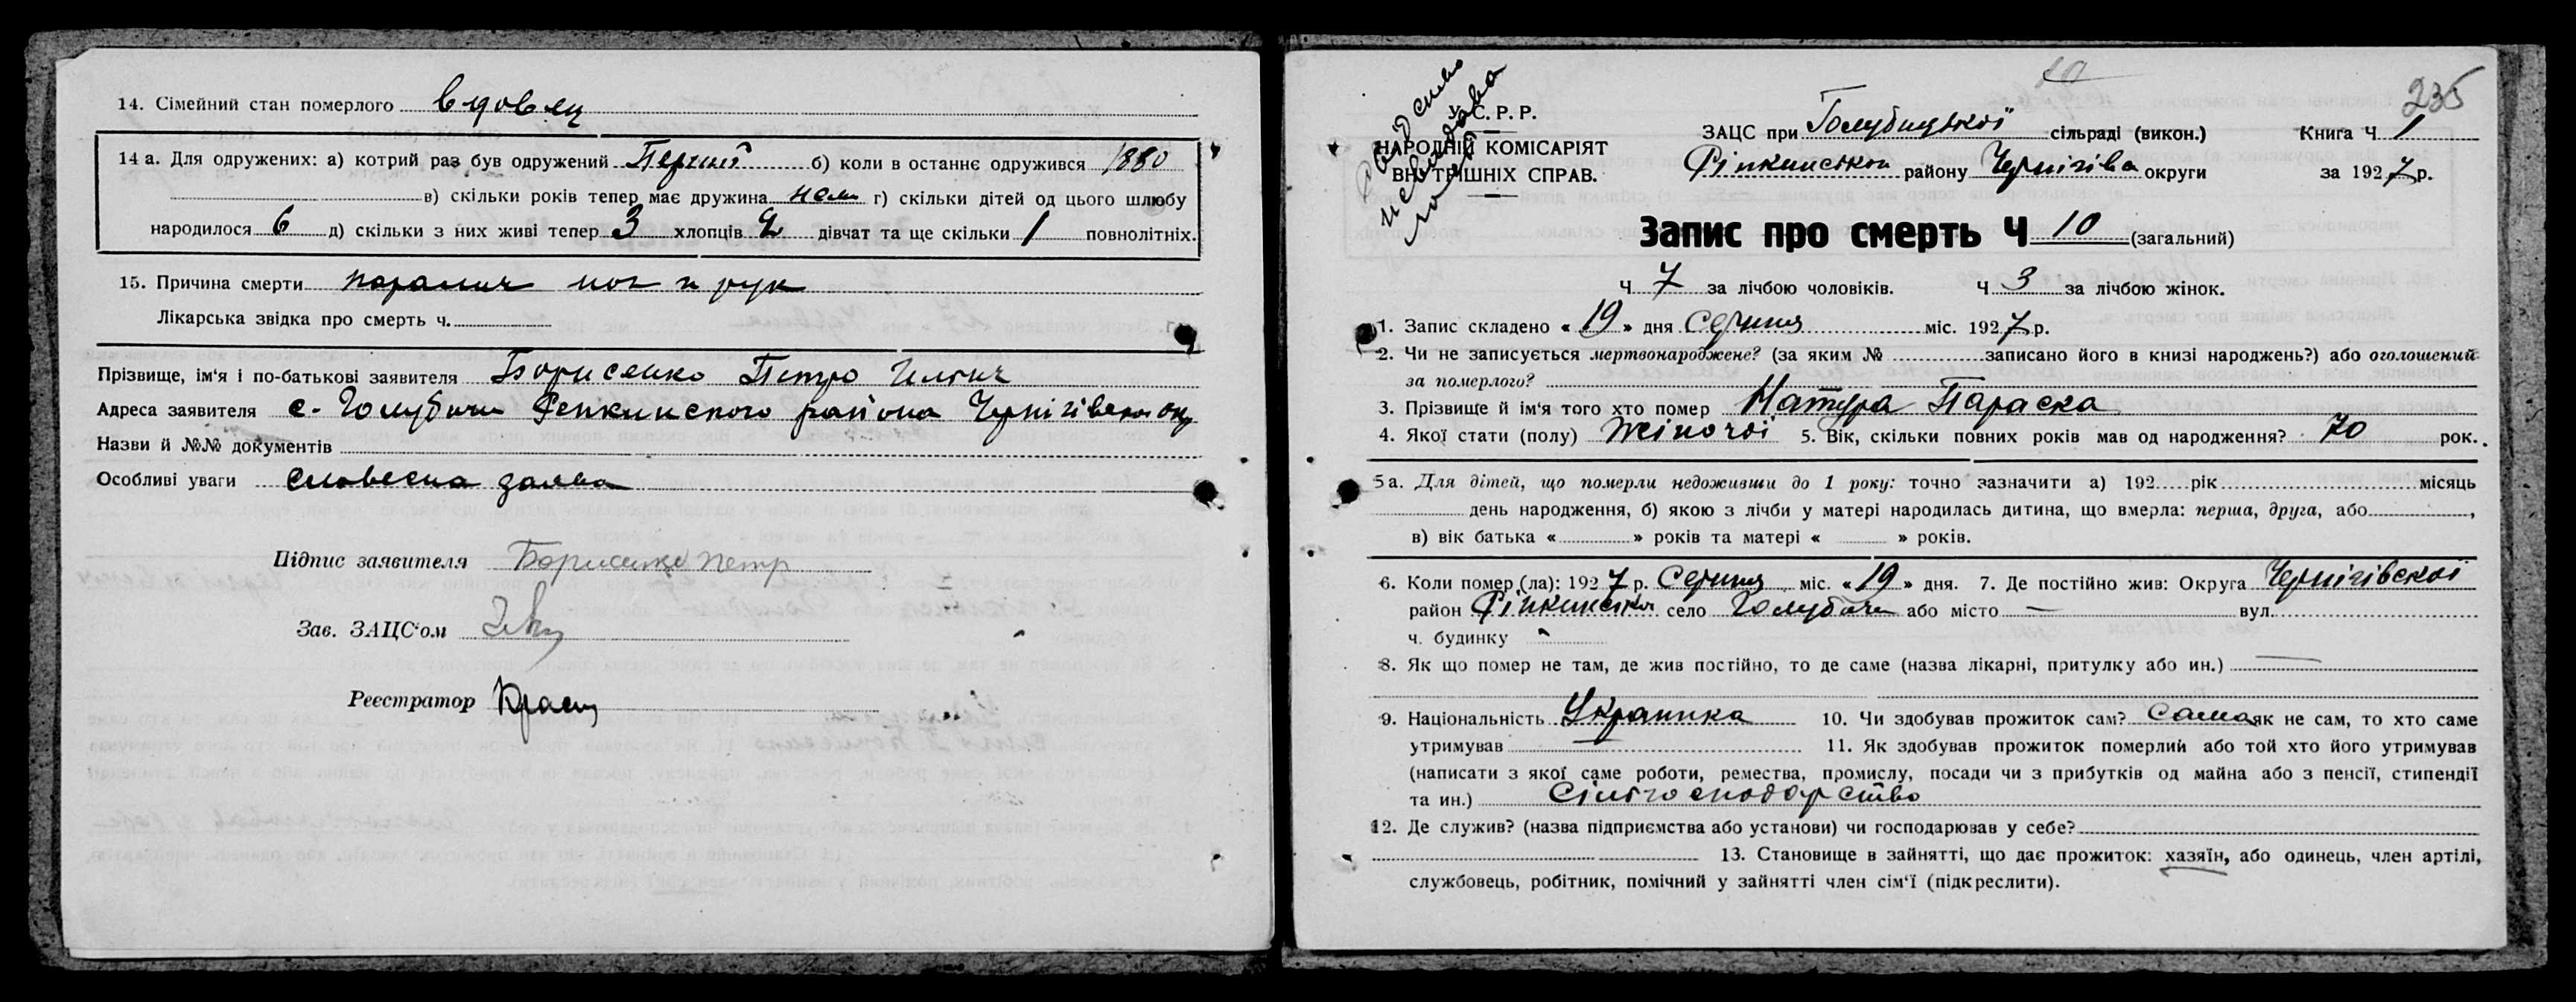 14. Сімейний стан померлого вдовец
14 а. Для одружених: а) котрий раз був одружений Перший б) коли в останнє одружився 1880
в) скільки років тепер має дружина нема г) скільки дітей од цього шлюбу
народилося 6 д) скільки з них живі тепер 3 хлопців 2 дівчат та ще скільки 1 повнолітніх.
15. Причина смерти паралич ног и рук
Лікарська звідка про смерть ч.
Прізвище, ім'я і по-батькові заявителя Борисенко Петро Ілліч
Адреса заявителя с. Голубичи Репкинского района Чернігівскої окр
Назви й №№ документів
Особливі уваги словесна заява
Підпис заявителя Борисенко Петр
Зав. ЗАЦС'ом
Реєстратор
235
У. С. Р. Р.
НАРОДНІЙ КОМІСАРІЯТ
ВНУТРІШНІХ СПРАВ.
ЗАЦС при Голубицької сільраді (викон.) Книга Ч 1
Ріпкинської району Чернігівс округи за 1927 р.
Запис про смерть Ч 10 (загальний)
Ч 7 за лічбою чоловіків. Ч 3 за лічбою жінок.
1. Запис складено « 19 » дня Серпня міс. 1927 р.
2. Чи не записується мертвонароджене? (за яким № записано його в книзі народжень?) або оголошений
за померлого?
3. Прізвище й ім'я того хто помер Матура Параска
4. Якої стати (полу) Жіночої 5. Вік, скільки повних років мав од народження? 70 рок.
5 а. Для дітей, що померли недоживши до 1 року: точно зазначити а) 192 рік місяць
день народження, б) якою з лічби у матері народилась дитина, що вмерла: перша, друга, або ,
в) вік батька « » років та матері « » років.
6. Коли помер (ла): 1927 р. Серпня міс. « 19 » дня. 7. Де постійно жив: Округа Чернігівскої
район Ріпкинської село Голубичи або місто — вул.
ч. будинку
8. Як що помер не там, де жив постійно, то де саме (назва лікарні, притулку або ин.) —
9. Національність Українка 10. Чи здобував прожиток сам? Сама як не сам, то хто саме
утримував 11. Як здобував прожиток померлий або той хто його утримував
(написати з якої саме роботи, ремества, промислу, посади чи з прибутків од майна або з пенсії, стипендії
та ин.) Сільгосподарство
12. Де служив? (назва підприємства або установи) чи господарював у себе?
13. Становище в зайнятті, що дає прожиток: хазяїн, або одинець, член артілі,
службовець, робітник, помічний у зайнятті член сім'ї (підкреслити).